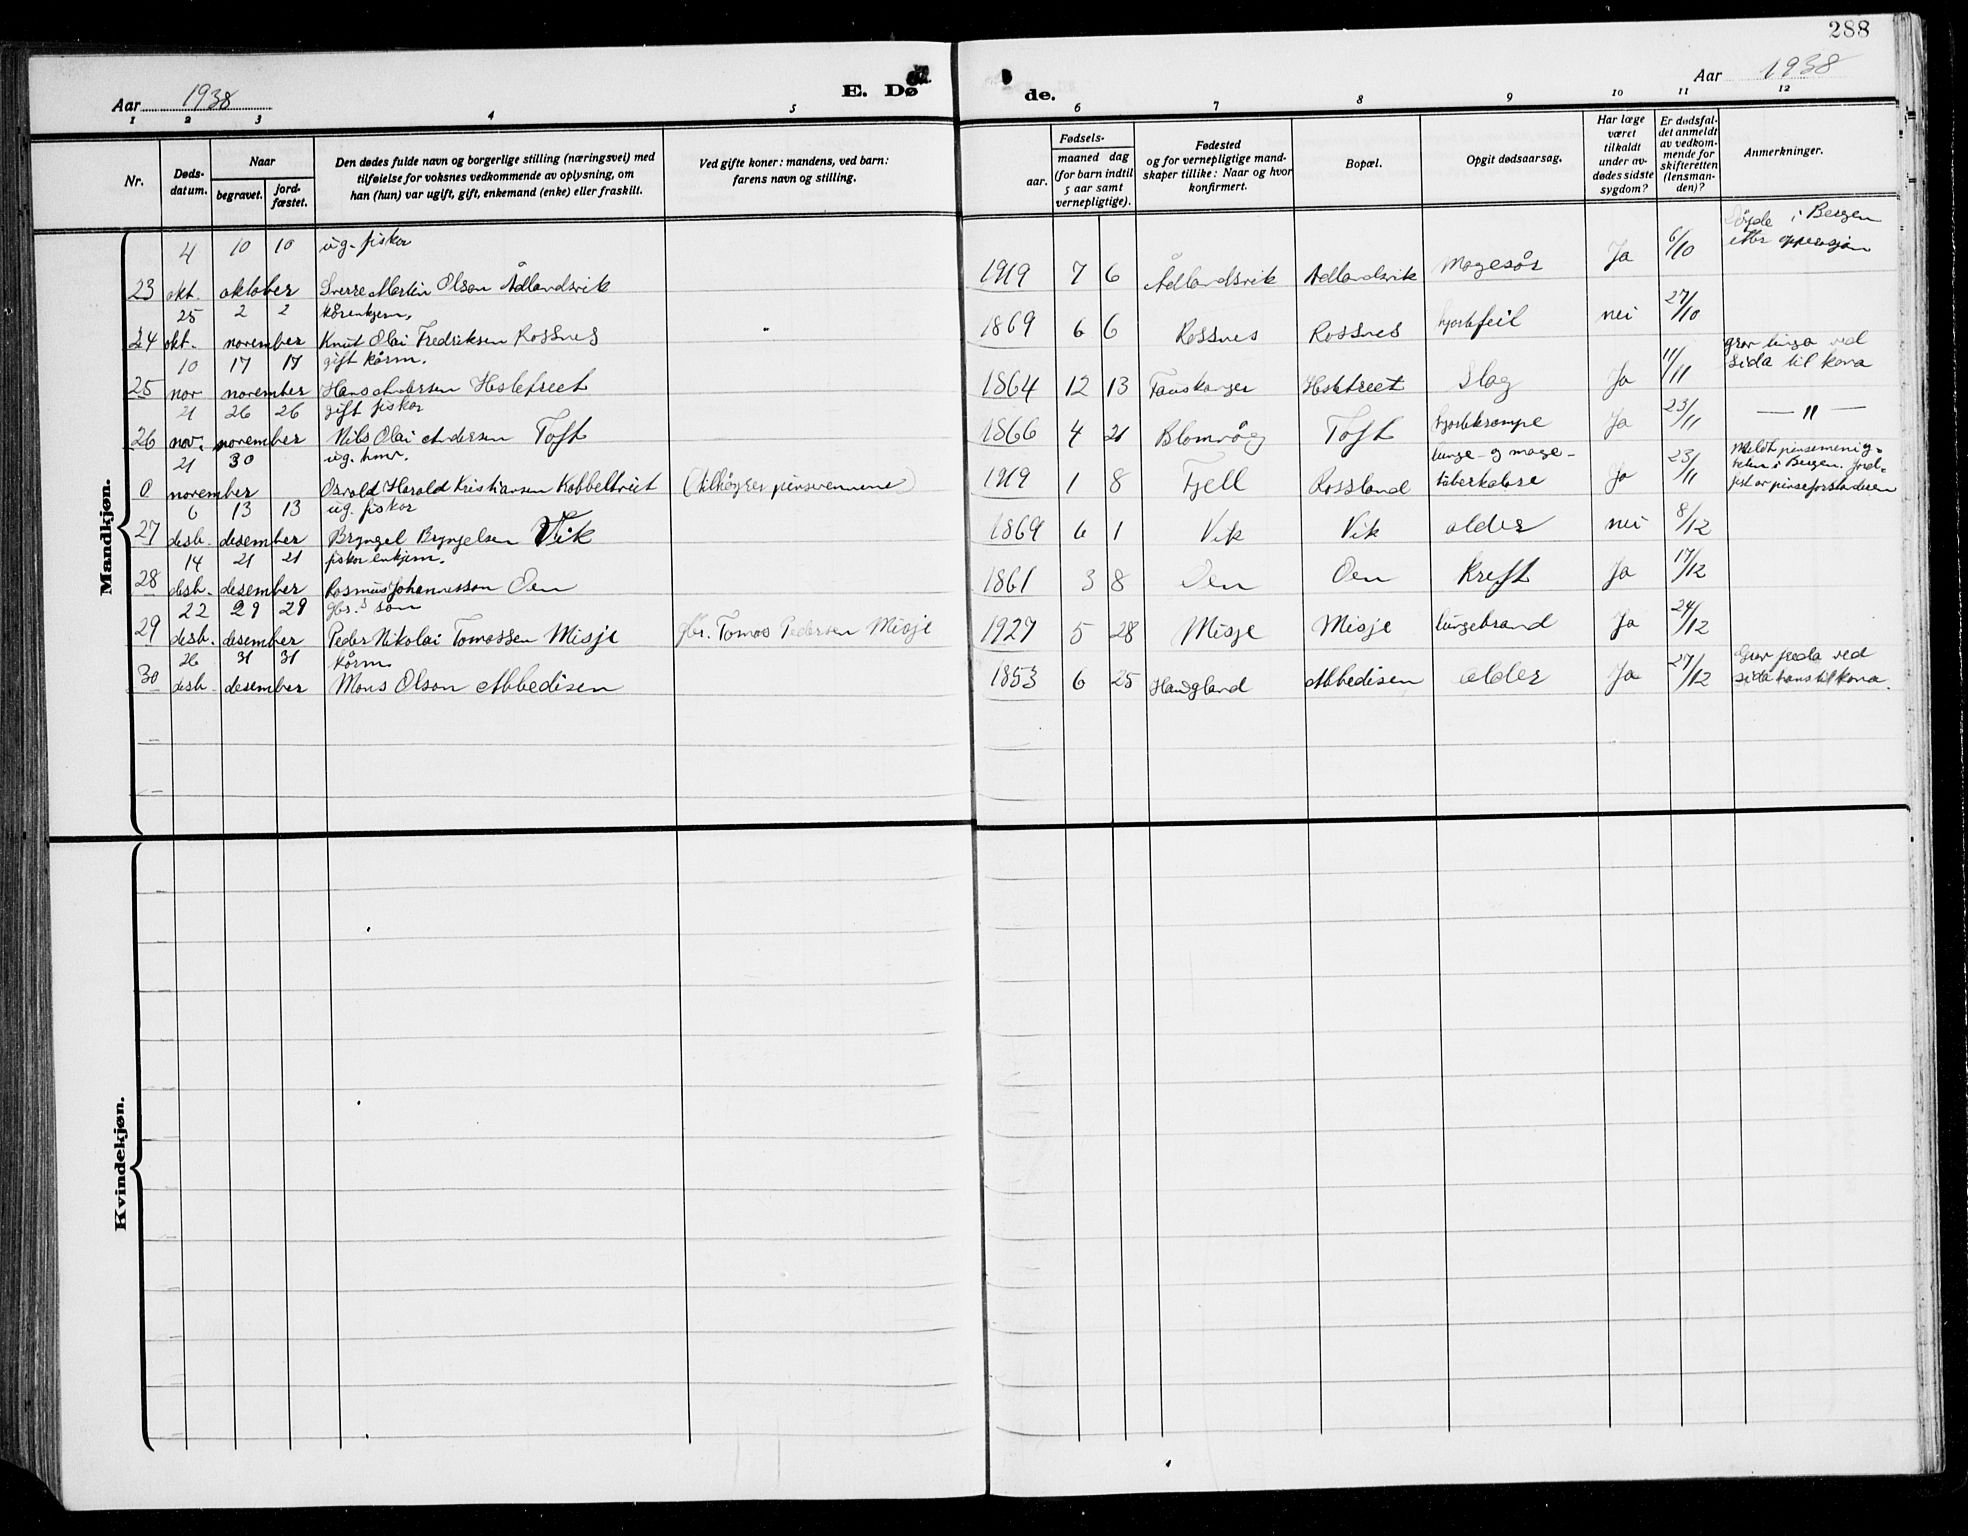 288
Aar 1938
E. Døde.
Aar 1938
1 2 3 4 5 6 7 8 9 10 11 12
Nr.
Døds-datum.
Naar
begravet.
jord-fæstet.
Den dødes fulde navn og borgerlige stilling (næringsvei) med
tilføielse for voksnes vedkommende av oplysning, om
han (hun) var ugift, gift, enkemand (enke) eller fraskilt.
Ved gifte koner: mandens, ved barn:
farens navn og stilling.
Fødsels-
aar.
maaned dag
(for barn indtil
5 aar samt
vernepligtige).
Fødested
og for vernepligtige mand-
skaper tillike: Naar og hvor
konfirmert.
Bopæl.
Opgit dødsaarsag.
Har læge
været
tilkaldt
under av-
dødes sidste
sygdom?
Er dødsfal-
det anmeldt
av vedkom-
mende for
skifteretten
(lensman-
den)?
Anmerkninger.
Mandkjøn.
4 10 10 ug. fiskar
23 okt. oktober Sverre Martin Olson Ådlandsvik 1919 7 6 Ådlandsvik Ådlandsvik Magesår Ja 6/10 Døyde i Bergen
etter opperasjon
25 2 2 kårenkjem.
24 okt. november Knut Olai Fredriksen Rossnes 1869 6 6 Rossnes Rossnes hjartefeil nei 27/10
10 17 17 gift kårm.
25 nov november Hans Andersen Hesletreet 1864 12 13 Tauskanger Hesletreet Slag Ja 11/11 grav tinga ved
sida til kona
21 26 26 gift fiskar
26 nov. november Nils Olai Andersen Toft 1866 4 21 Blomvåg Toft hjartekrampe Ja 23/11 — " —
21 30 ug. hmr.
0 november Osvald Harald Kristiansen Kobbeltveit (tilhøyrer pinsevennene) 1919 1 8 Fjell Rossland lunge- og mage-
tuberkulose Ja 23/11 Meldt pinsemenig-
heten i Bergen. Jord-
fest av pinseforstanderen
6 13 13 ug. fiskar
27 desb. desember Bryngel Bryngelsen Vik 1869 6 1 Vik Vik alder nei 8/12
14 21 21 fiskar enkjem.
28 desb. desember Rasmus Johannesson Oen 1861 3 8 Oen Oen Kreft Ja 17/12
22 29 29 gbr.s son
29 desb. desember Peder Nikolai Tomassen Misje gbr. Tomas Pedersen Misje 1927 5 28 Misje Misje lungebrand Ja 24/12
26 31 31 kårm.
30 desb. desember Mons Olson Abbedisen 1853 6 25 Haugland Abbedisen alder Ja 27/12 Grav freda ved
sida hans til kona.
Kvindekjøn.